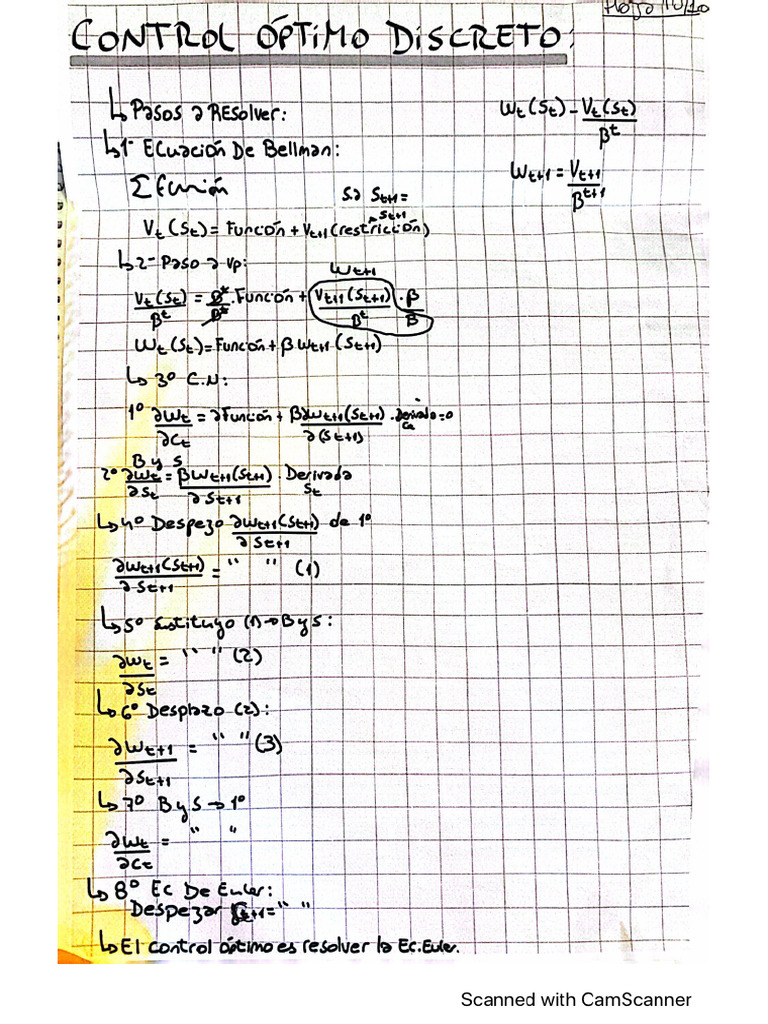 Hoja 10/10
CONTROL ÓPTIMO DISCRETO:
↳ Pasos a Resolver:
Wt(St) = Vt(St)/β^t
↳ 1º Ecuación De Bellman:
Wt+1 = Vt+1/β^t+1
Σ Función s.a St+1 =
St+1
Vt(St) = Función + Vt+1(restricción)
↳ 2º Paso a Vp:
Wt+1
Vt(St)/β^t = β^t/β^t . Función + Vt+1(St+1)/β^t . β/β
Wt(St) = Función + β Wt+1 (St+1)
↳ 3º C.N:
1º ∂Wt/∂Ct = ∂Función + β∂Wt+1(St+1)/∂(St+1) . Derivada = 0
Ct
B y S
2º ∂Wt/∂St = βWt+1(St+1)/∂St+1 . Derivada
St
↳ 4º Despezo ∂Wt+1(St+1)/∂St+1 de 1º
∂Wt+1(St+1)/∂St+1 = " " (1)
↳ 5º Sustituyo (1) → B y S:
∂Wt/∂St = " " (2)
↳ 6º Desplazo (2):
∂Wt+1/∂St+1 = " " (3)
↳ 7º B y S → 1º
∂Wt/∂Ct = " "
↳ 8º Ec De Euler:
Despezar Ct+1 = " "
↳ El control óptimo es resolver la Ec. Euler.
Scanned with CamScanner